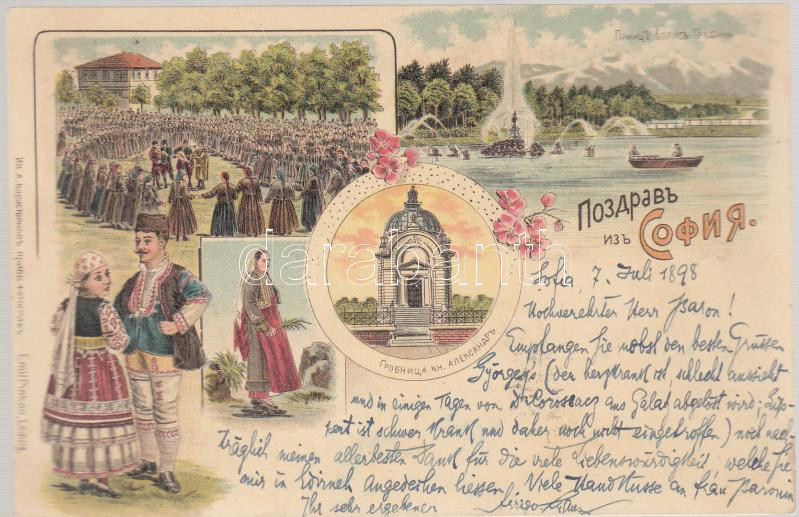 Принцъ Борисъ Градина
Поздравъ
изъ София.
Гробница Кн. Александръ
Ив. А. Карастояновъ придв. фотографъ
Emil Pinkau, Leipzig
darabanth.com
Sofia, 7. Juli 1898
Hochverehrter Herr Baron!
Empfangen Sie nebst den besten Grüssen
György's (der herzkrank ist, schlecht aussieht
und in einigen Tagen von Dr aus Galatz abgelöst wird;
ist schwer krank und daher noch nicht eingetroffen) noch nach-
träglich meinen allerbesten Dank für die viele Liebenswürdigkeit welche Sie
mir in Edirneh Angedeihen liessen. Viele Handküsse an Frau Baronin
Ihr sehr ergebener